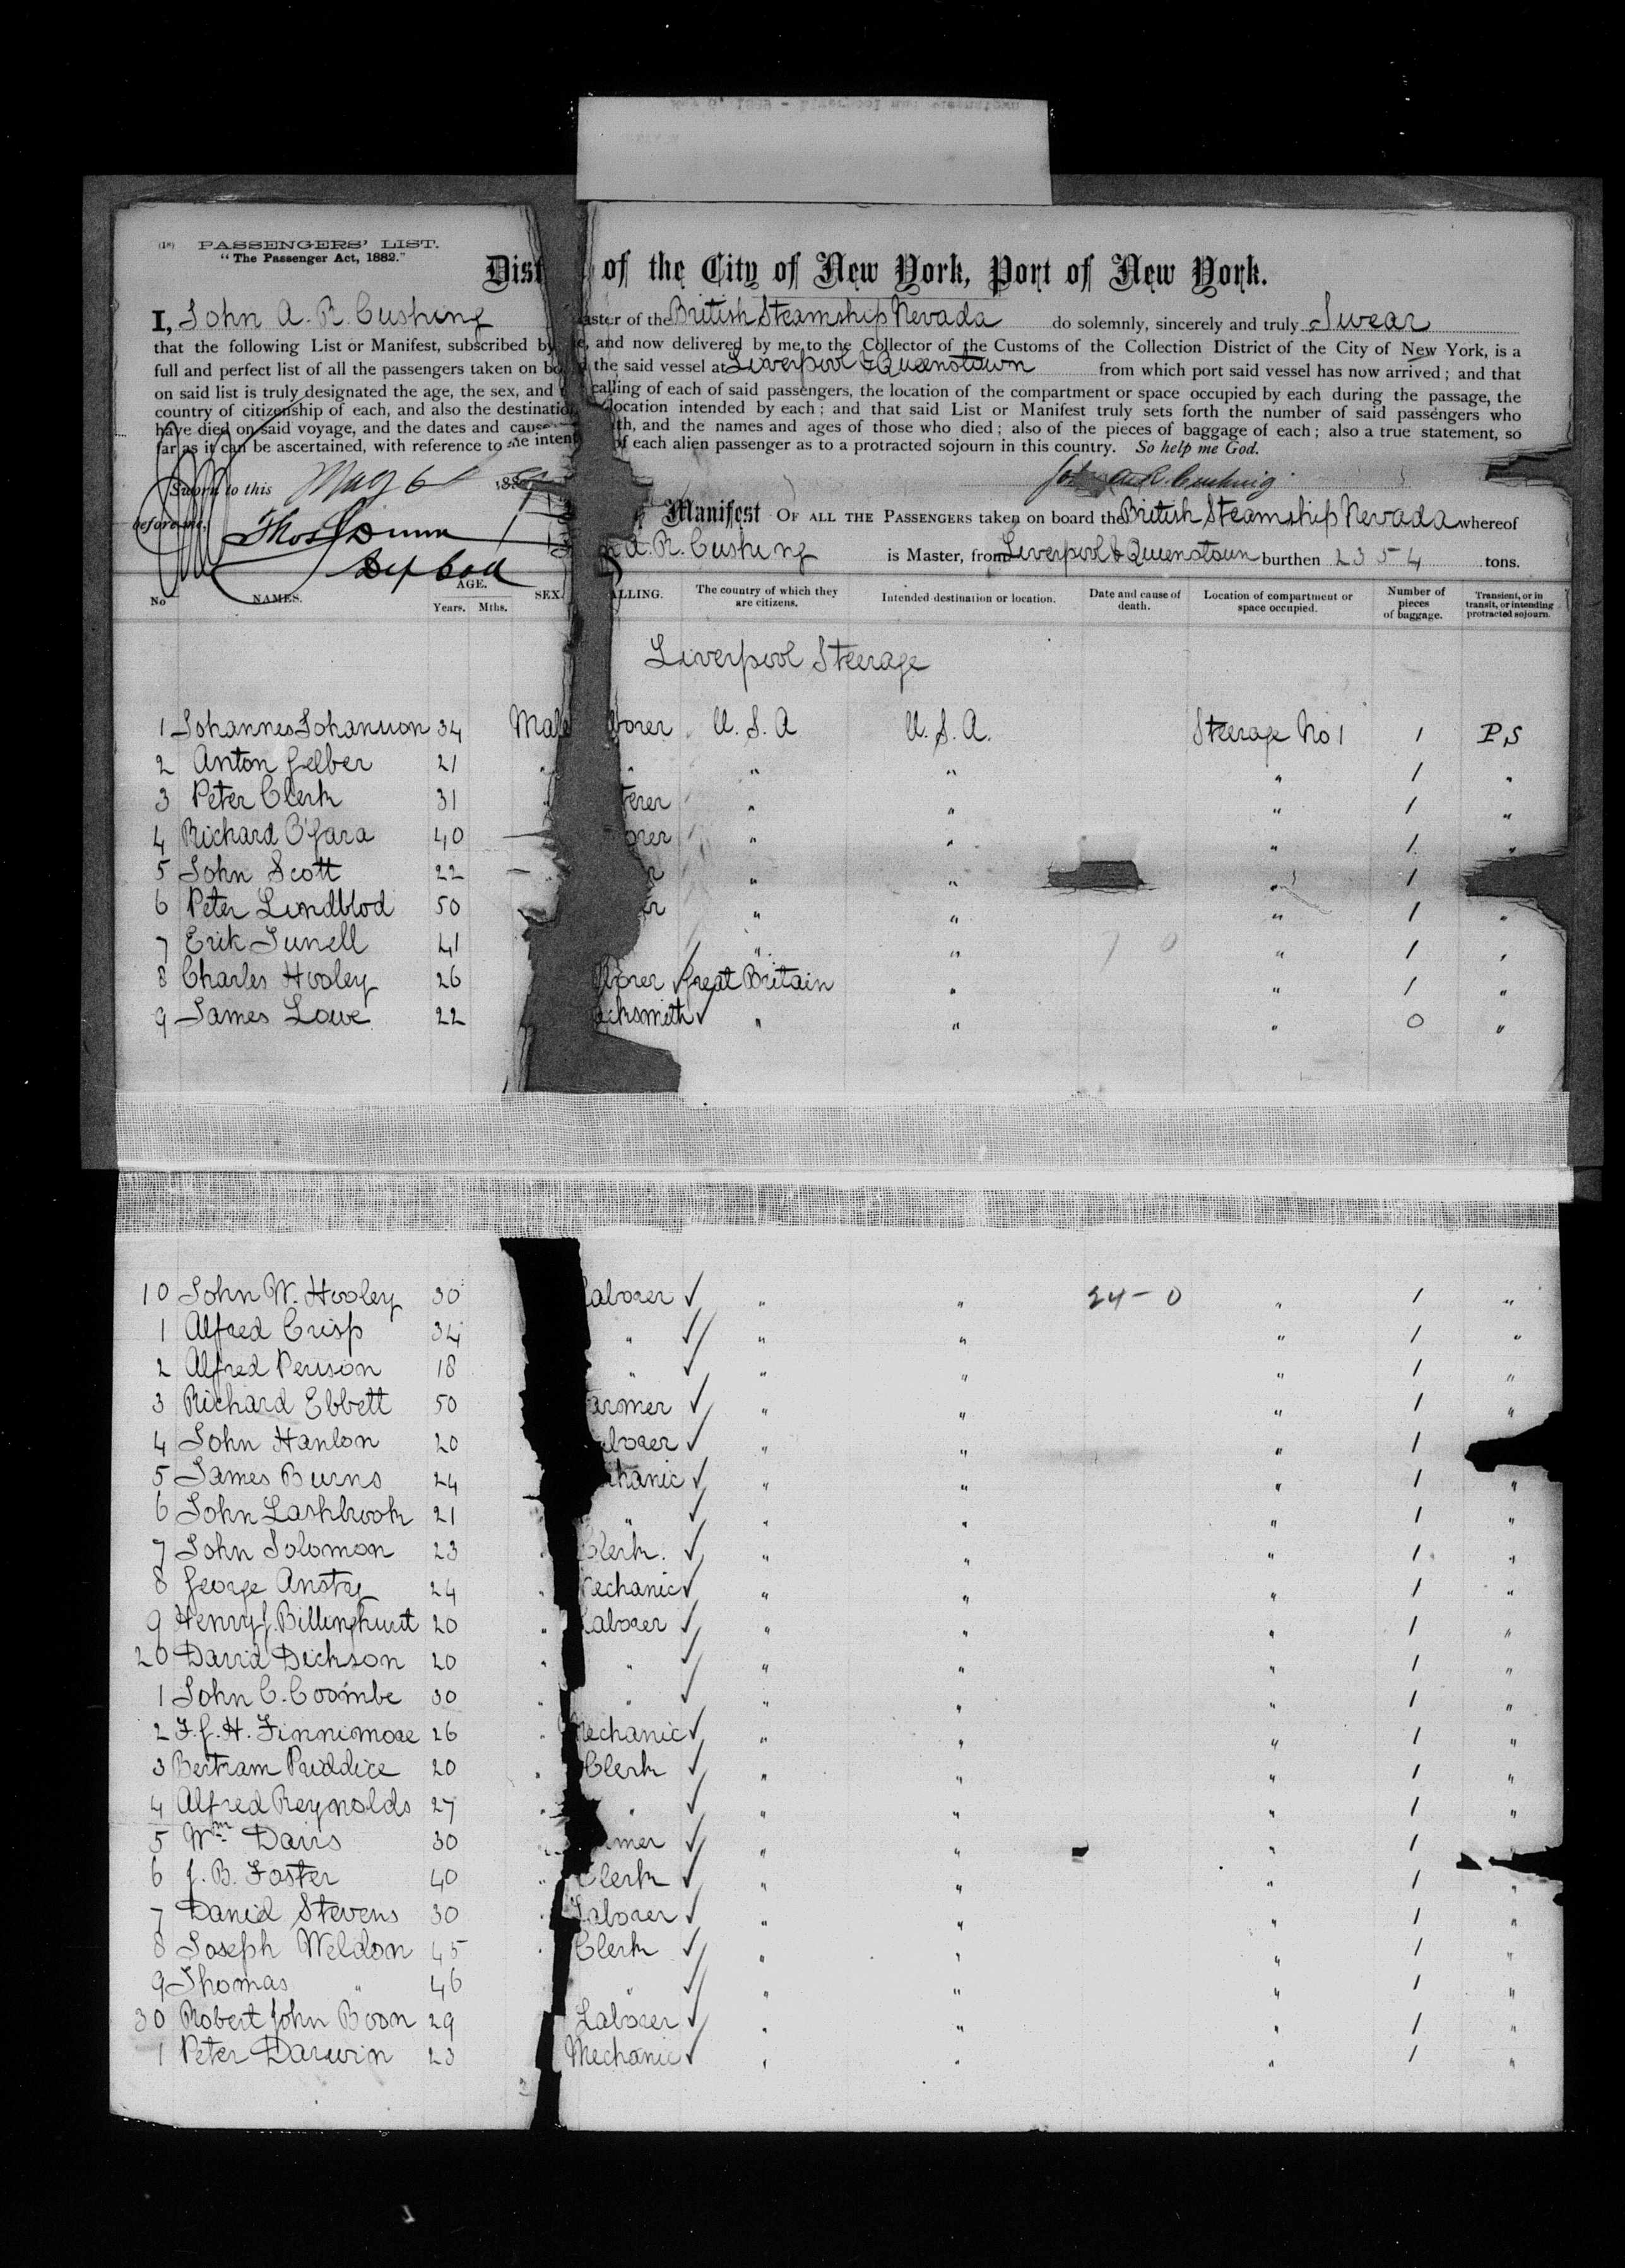 (18) PASSENGERS' LIST.
"The Passenger Act, 1882."
Dist of the City of New York, Port of New York.
I, John A. R. Cushing aster of the British Steamship Nevada do solemnly, sincerely and truly Swear
that the following List or Manifest, subscribed by e, and now delivered by me to the Collector of the Customs of the Collection District of the City of New York, is a
full and perfect list of all the passengers taken on bo d the said vessel at Liverpool & Queenstown from which port said vessel has now arrived; and that
on said list is truly designated the age, the sex, and calling of each of said passengers, the location of the compartment or space occupied by each during the passage, the
country of citizenship of each, and also the destination location intended by each; and that said List or Manifest truly sets forth the number of said passengers who
have died on said voyage, and the dates and cause th, and the names and ages of those who died; also of the pieces of baggage of each; also a true statement, so
far as it can be ascertained, with reference to the intent of each alien passenger as to a protracted sojourn in this country. So help me God.
Sworn to this May 6 188 John A. R. Cushing
before me, Thos Dunn
Dep Coll
Manifest OF ALL THE PASSENGERS taken on board the British Steamship Nevada whereof
A. R. Cushing is Master, from Liverpool & Queenstown burthen 2354 tons.
No NAMES. AGE. Years. Mths. SEX. ALLING. The country of which they are citizens. Intended destination or location. Date and cause of death. Location of compartment or space occupied. Number of pieces of baggage. Transient, or in transit, or intending protracted sojourn.
Liverpool Steerage
1 Johannes Johanson 34 Male borer U.S.A U.S.A. Steerage No 1 1 P,S
2 Anton Gelber 21 " " " " " 1 "
3 Peter Clerk 31 " terer " " " 1 "
4 Richard O'Gara 40 orer " " " 1 "
5 John Scott 22 r " " " 1
6 Peter Lindblod 50 er " " " 1 "
7 Erik Sunell 41 " " " 1 "
8 Charles Hooley 26 borer Great Britain " " 1 "
9 James Lowe 22 acksmith " " " 0 "
10 John W. Hooley 30 Laborer " " 24-0 " 1 "
1 Alfred Crisp 34 " " " " 1 "
2 Alfred Perison 18 " " " " 1 "
3 Richard Ebbett 50 armer " " " 1 "
4 John Hanlon 20 aborer " " " 1
5 James Burns 24 chanic " " " 1 "
6 John Lashbrook 21 " " " " 1 "
7 John Solomon 23 " Clerk. " " " 1 "
8 George Anstey 24 " Mechanic " " " 1 "
9 Henry J. Billinghurst 20 " Laborer " " " 1 "
20 David Dickson 20 " " " " " 1 "
1 John C. Coombe 30 " " " " " 1 "
2 F. J. H. Finnimore 26 " Mechanic " " " 1 "
3 Bertram Priddice 20 " Clerk " " " 1 "
4 Alfred Reynolds 27 " " " " " 1 "
5 Wm Davis 30 " rmer " " " 1
6 J. B. Foster 40 " Clerk " " " 1 "
7 Daniel Stevens 30 " Laborer " " " 1 "
8 Joseph Weldon 45 " Clerk " " " 1 "
9 Thomas " 46 " " " " 1 "
30 Robert John Boon 29 Laborer " " " 1 "
1 Peter Darwin 23 Mechanic " " " 1 "